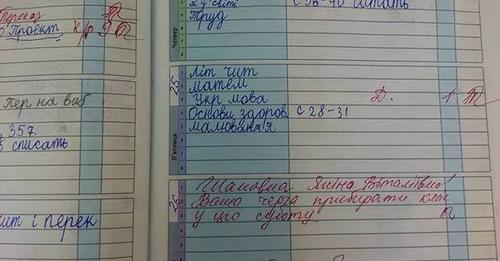 Переказ
Проєкт к/р 9 П
Пер на виб
357
списать
чит і перек
я у світі с 36-40 читать
Труд
Четвер
25
Літ чит
матем
Укр мова Д. 1
Основи здоров с 28-31
малювання
П'ятниця
26
Шановна Яніна Віталіївно
Ваша черга прибирати клас
у цю суботу